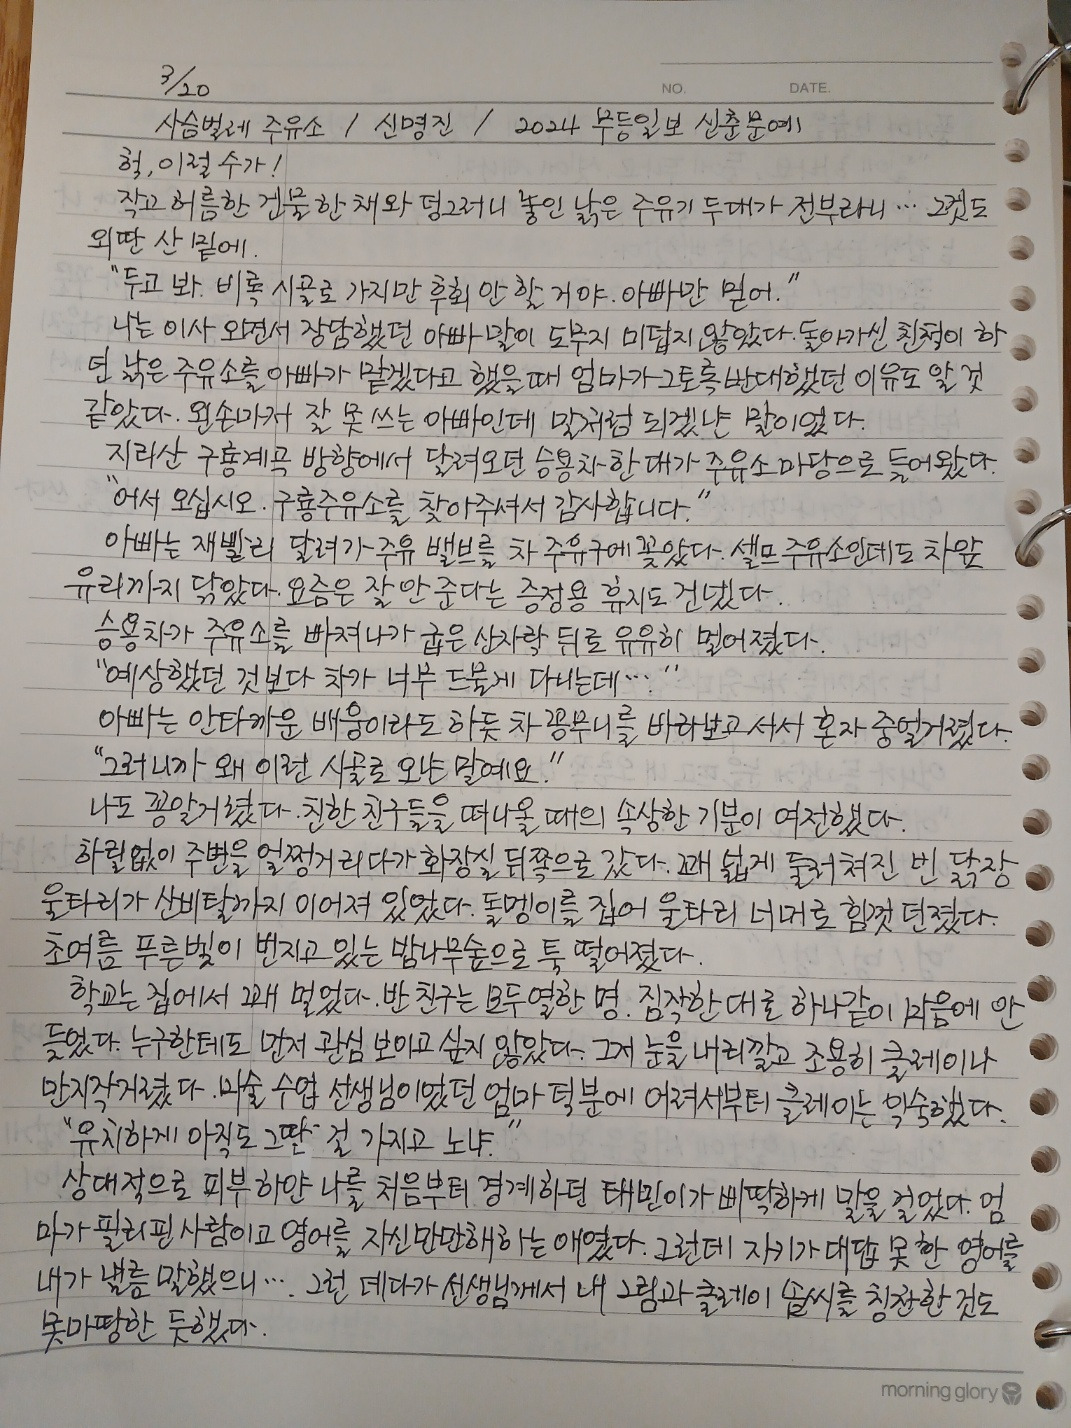 3/20
NO. DATE.
사슴벌레 주유소 / 신명진 / 2024 무등일보 신춘문예
헉, 이럴 수가!
작고 허름한 건물 한 채와 덩그러니 놓인 낡은 주유기 두대가 전부라니… 그것도
외딴 산 밑에.
"두고 봐. 비록 시골로 가지만 후회 안 할 거야. 아빠만 믿어."
나는 이사 오면서 장담했던 아빠 말이 도무지 미덥지 않았다. 돌아가신 친척이 하
던 낡은 주유소를 아빠가 맡겠다고 했을 때 엄마가 그토록 반대했던 이유도 알 것
같았다. 왼손마저 잘 못 쓰는 아빠인데 말처럼 되겠냔 말이었다.
지리산 구룡계곡 방향에서 달려오던 승용차 한 대가 주유소 마당으로 들어왔다.
"어서 오십시오. 구룡주유소를 찾아주셔서 감사합니다."
아빠는 재빨리 달려가 주유 밸브를 차 주유구에 꽂았다. 셀프 주유소인데도 차 앞
유리까지 닦았다. 요즘은 잘 안 준다는 증정용 휴지도 건넸다.
승용차가 주유소를 빠져나가 굽은 산자락 뒤로 유유히 멀어졌다.
"예상했던 것보다 차가 너무 드물게 다니는데…."
아빠는 안타까운 배웅이라도 하듯 차 꽁무니를 바라보고 서서 혼자 중얼거렸다.
"그러니까 왜 이런 시골로 오냔 말예요."
나도 꽁알거렸다. 친한 친구들을 떠나올 때의 속상한 기분이 여전했다.
하릴없이 주변을 얼쩡거리다가 화장실 뒤쪽으로 갔다. 꽤 넓게 둘러쳐진 빈 닭장
울타리가 산비탈까지 이어져 있었다. 돌멩이를 집어 울타리 너머로 힘껏 던졌다.
초여름 푸른빛이 번지고 있는 밤나무숲으로 툭 떨어졌다.
학교는 집에서 꽤 멀었다. 반 친구는 모두 열한 명. 짐작한 대로 하나같이 마음에 안
들었다. 누구한테도 먼저 관심 보이고 싶지 않았다. 그저 눈을 내리깔고 조용히 클레이나
만지작거렸다. 미술 수업 선생님이었던 엄마 덕분에 어려서부터 클레이는 익숙했다.
"유치하게 아직도 그딴 걸 가지고 노냐."
상대적으로 피부 하얀 나를 처음부터 경계하던 태민이가 삐딱하게 말을 걸었다. 엄
마가 필리핀 사람이고 영어를 자신만만해하는 애였다. 그런데 자기가 대답 못 한 영어를
내가 낼름 말했으니… 그런 데다가 선생님께서 내 그림과 클레이 솜씨를 칭찬한 것도
못마땅한 듯했다.
morning glory